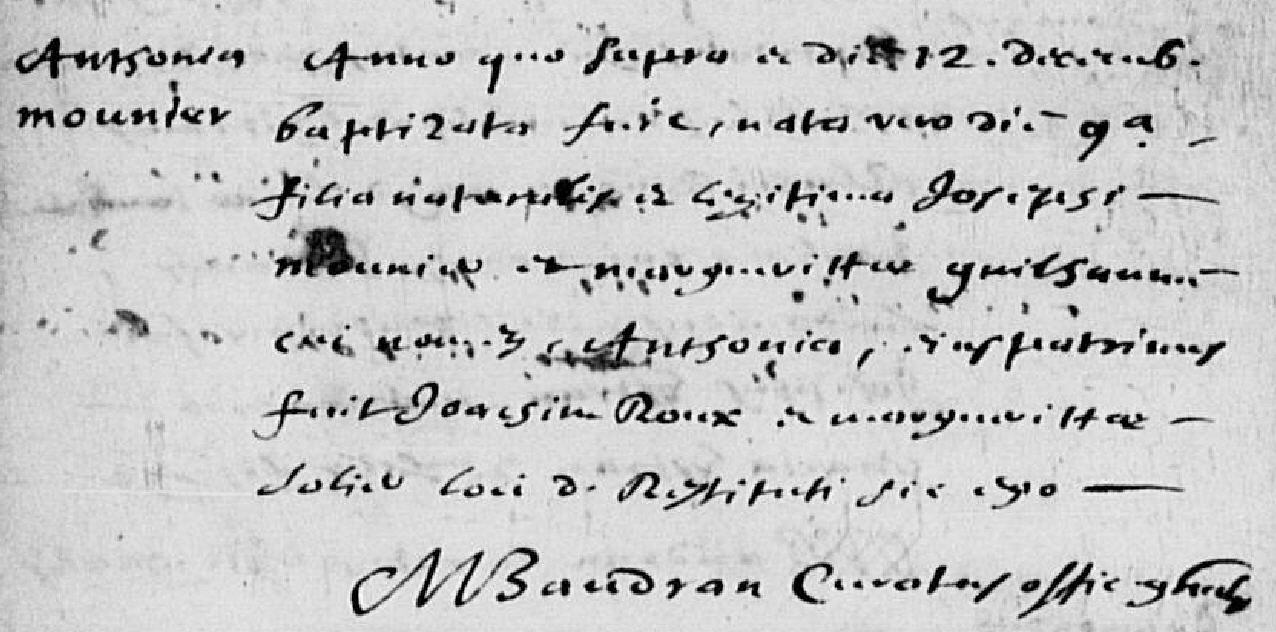 Anthonia Anno quo supra et die 12. decemb.
mounier baptizata fuit, nata vero die 9a
filia naturalis et legitima Josephi
mounier et marguerittae guilhaume
cui nomen, Anthonia, eius patrinus
fuit Joachim Roux et marguerittae
Solier loci de Restituti sic ego
MBaudran Curatus offic